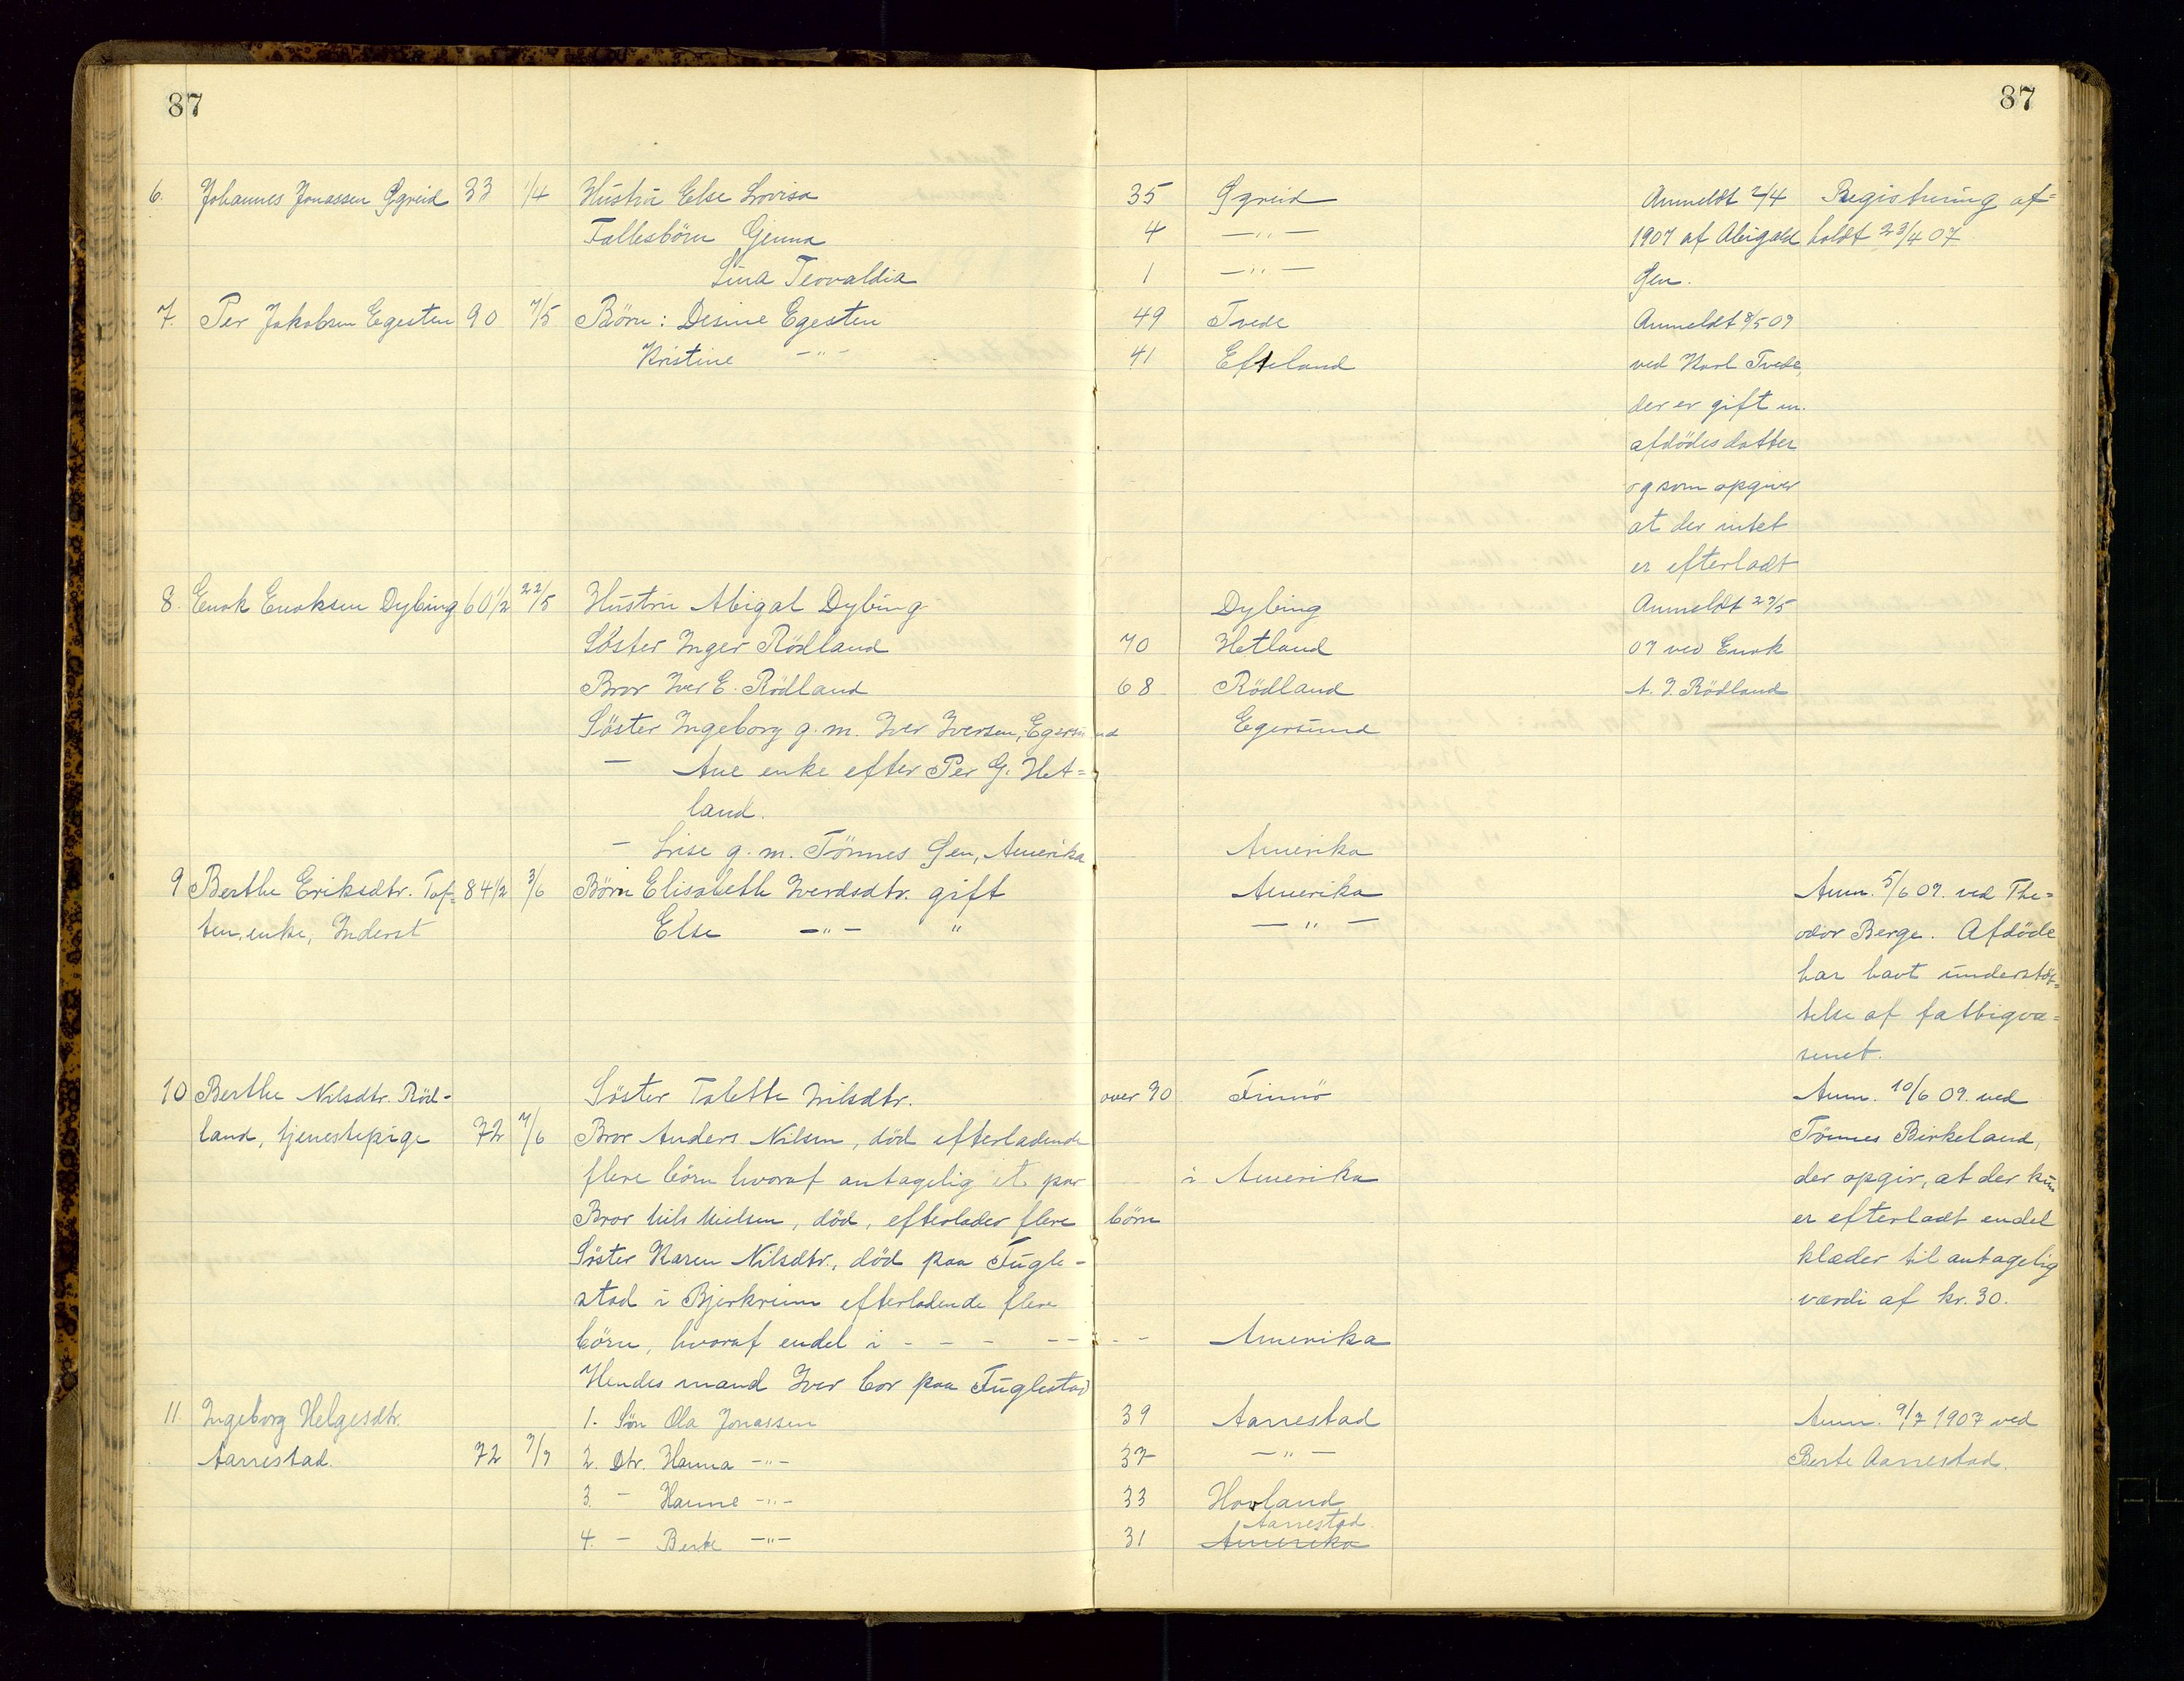 87 87
6. Johannes Jonassen Ögreid 33 1/4 Hustru Else Lovisa 35 Ögreid Anmeldt 2/4 Registrering af=
Fællesbörn Genna 4 —"— 1907 af Abigael holdt 23/4 07
Sina Teovaldia 1 —"— Gen.
7. Per Jakobsen Egesten 90 7/5 Börn: Desine Egesten 49 Tvede Anmeldt 8/5 07
Kristine —"— 41 Efteland ved Karl Tvede,
der er gift m.
afdödes datter
og som opgiver
at der intet
er efterladt
8. Enok Enoksen Dybing 60 1/2 22/5 Hustru Abigal Dybing Dybing Anmeldt 27/5
Söster Inger Rödland 70 Hetland 07 ved Enok
Bror Iver E. Rödland 68 Rödland A. I. Rödland
Söster Ingeborg g. m. Iver Iversen, Egersund Egersund
— Ane enke efter Per G. Het=
land.
— Lise g. m. Tönnes Gen, Amerika Amerika
9 Berthe Eriksdtr. Tof= 84 1/2 3/6 Börn Elisabeth Iverdsdtr. gift Amerika Anm. 5/6 07. ved The=
ten, enke, Inderst Else —"— " —"— odor Berge. Afdöde
har havt understöt=
telse af fattigvæ=
senet.
10 Berthe Nilsdtr. Röd- Söster Talette Nilsdtr. over 70 Finnö Anm. 10/6 07. ved
land, tjenestepige 72 7/6 Bror Anders Nilsen, död efterladende Tönnes Birkeland,
flere börn hvoraf antagelig et par i Amerika der opgir, at der kun
Bror Nils Nielsen, död, efterlader flere börn er efterladt endel
Söster Karen Nilsdtr., död paa Fugle- klæder til antagelig
stad i Bjerkreim efterladende flere værdi af kr. 30.
börn, hvoraf endel i - - - - - - - Amerika
Hendes mand Iver bor paa Fuglestad
11. Ingeborg Helgesdtr. 1. Sön Ola Jonassen 39 Aarrestad Anm. 9/7 1907 ved
Aarrestad. 72 7/7 2. Dtr. Hanna —"— 37 —"— Berte Aarrestad.
3. — Hanne —"— 33 Hovland
Aarrestad.
4. — Berte —"— 31 Amerika